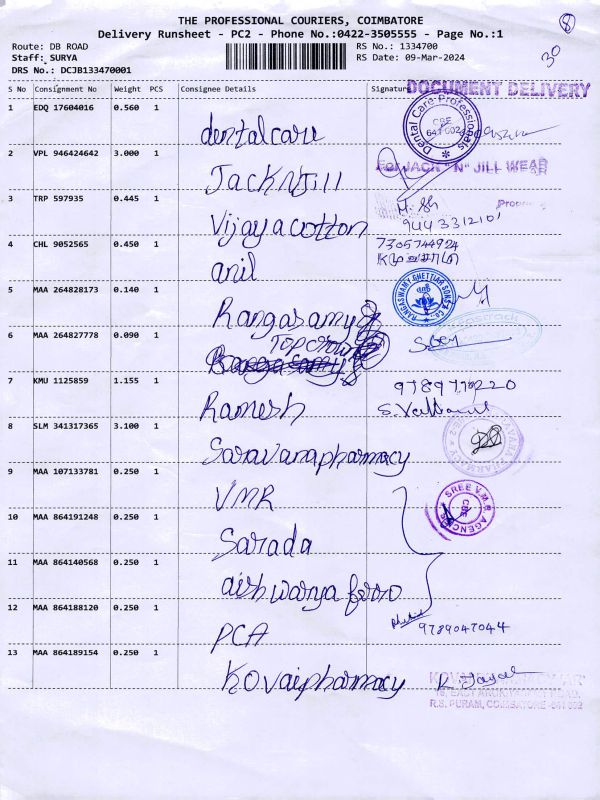 THE PROFESSIONAL COURIERS, COIMBATORE
Delivery Runsheet - PC2 - Phone No.:0422-3505555 - Page No.:1
8
Route: DB ROAD
Staff: SURYA
DRS No.: DCJB133470001
RS No.: 1334700
RS Date: 09-Mar-2024
30
S No Consignment No Weight PCS Consignee Details Signature
DOCUMENT DELIVERY
1 EDQ 17604016 0.560 1 dentalcare
Dental Care Professionals
CBE
641 002
2 VPL 946424642 3.000 1 JackNJill
For JACK "N" JILL WEAR
3 TRP 597935 0.445 1 Vijayacotton
9443312101
4 CHL 9052565 0.450 1 anil
7305744924
5 MAA 264828173 0.140 1 Rangasamy
RANGASWAMY CHETTIAR SONS & Co
6 MAA 264827778 0.090 1 Topcrown
7 KMU 1125859 1.155 1 Ramesh
8 SLM 341317365 3.100 1 Saravanapharmacy
9 MAA 107133781 0.250 1 VMR
SREE V.M.R. AGENCIES
CBE
10 MAA 864191248 0.250 1 Sarada
11 MAA 864140568 0.250 1 aishwarya ferro
12 MAA 864188120 0.250 1 PCA
9789047044
13 MAA 864189154 0.250 1 Kovaipharmacy
R.S. PURAM, COIMBATORE-641 002